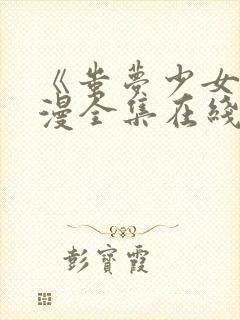 《蚩夢少女
漫全集在綫
彭寶霞